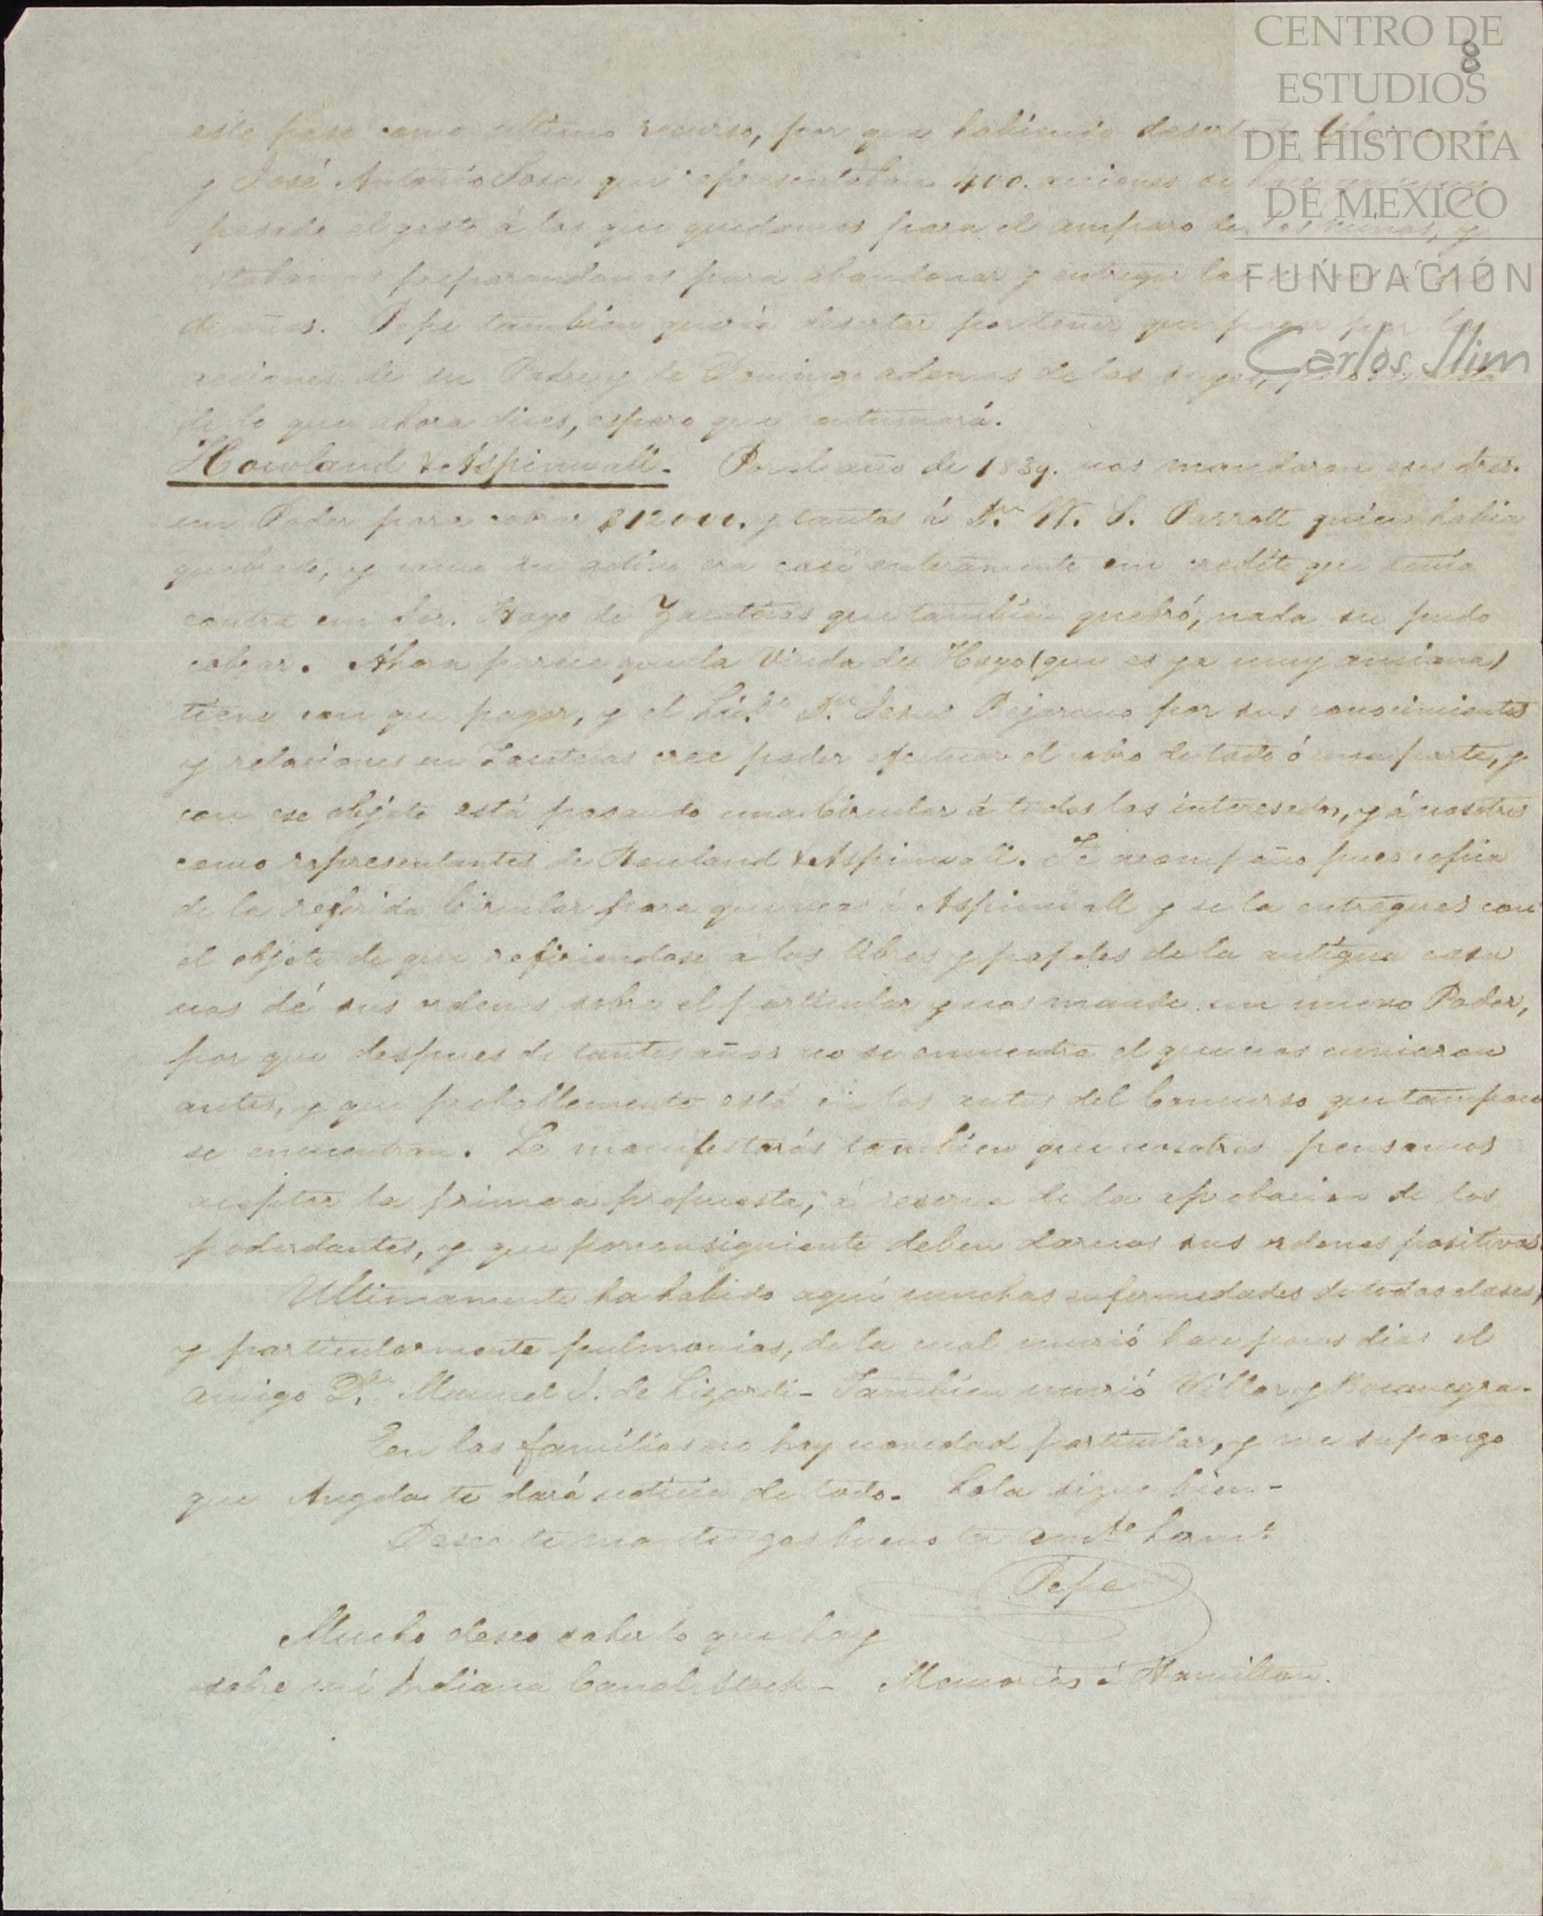 CENTRO DE
ESTUDIOS
DE HISTORIA
DE MEXICO
FUNDACIÓN
Carlos Slim
8
este paso como ultimo recurso, por que habiendo
y José Antonio Sosa que representaban 400. acciones se
pesado el gasto á los que quedamos para el amparo de las minas, y
estabamos preparandonos para abandonar y entregar las
dueños. Pepe tambien queria desertar por tener que pagar por las
acciones de su Padre y de Domingo ademas de las suyas,
de lo que ahora dices, espero que continuará.
Howland & Aspinwall. Por el año de 1839. nos mandaron esos Sres.
un Poder para cobrar $12000. y tantos á Dn. W. S. Parrott quien habia
quebrado, y como su activo era casi enteramente un credito que tenia
contra un Sor. Hoyo de Zacatecas que tambien quebró, nada se pudo
cobrar. Ahora parece que la Viuda de Hoyo (que es ya muy anciana)
tiene con que pagar, y el Licdo. Dn. Jesus Bejarano por sus conocimientos
y relaciones en Zacatecas cree poder efectuar el cobro de todo ó una parte, y
con ese objeto está pasando una Circular á todos los interesados, y á nosotros
como representantes de Howland & Aspinwall. Te acompaño pues copia
de la referida Circular para que veas á Aspinwall y se la entregues con
el objeto de que refiriendose a los libros y papeles de la antigua casa
nos dé sus ordenes sobre el particular y nos mande un nuevo Poder,
por que despues de tantos años no se encuentra el que nos enviaron
antes, y que probablemente está en los autos del Concurso que tampoco
se encuentran. Le manifestarás tambien que nosotros pensamos
aceptar la primera propuesta, á reserva de la aprobacion de los
poderdantes, y que por consiguiente deben darnos sus ordenes positivas.
Ultimamente ha habido aquí muchas enfermedades de todas clases,
y particularmente pulmonias, de la cual murió hace pocos dias el
amigo Dn. Manuel J. de Lizardi - Tambien murió Villar y Bocanegra.
En las familias no hay novedad particular, y me supongo
que Angela te dará noticia de todo. Lola sigue bien -
Desea te mantengas bueno tu amte. herm.
Pepe
Mucho deseo saber lo que hay
sobre mi Indiana Canal Stock - Memorias á Hamilton.